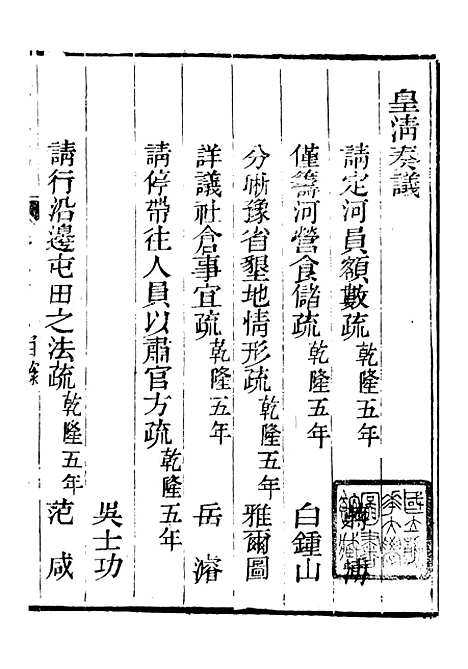 皇清奏議
請定河員額數疏 乾隆五年
僅籌河營食儲疏 乾隆五年 白鍾山
分晰豫省墾地情形疏 乾隆五年 雅爾圖
詳議社倉事宜疏 乾隆五年 岳濬
請停帶往人員以肅官方疏 乾隆五年
吳士功
請行沿邊屯田之法疏 乾隆五年 范咸
目錄